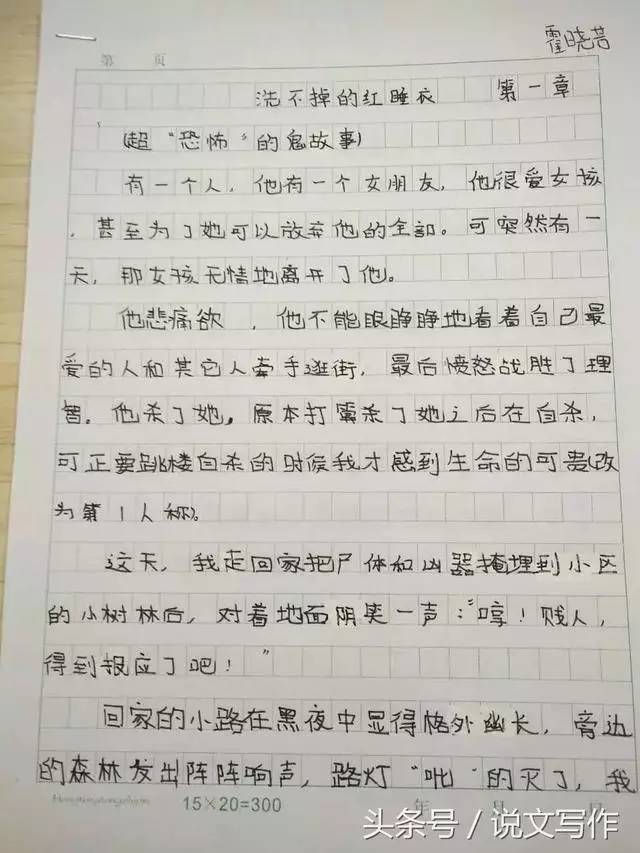 霍晓芸
第 页
洗不掉的红睡衣 第一章
(超“恐怖”的鬼故事)
有一个人,他有一个女朋友,他很爱女孩
,甚至为了她可以放弃他的全部。可突然有一
天,那女孩无情地离开了他。
他悲痛欲 ,他不能眼睁睁地看着自己最
爱的人和其它人牵手逛街,最后愤怒战胜了理
智。他杀了她。原本打算杀了她之后在自杀,
可正要跳楼自杀的时候我才感到生命的可贵(改
为第1人称)。
这天,我走回家把尸体和凶器掩埋到小区
的小树林后,对着地面阴笑一声:“哼!贱人,
得到报应了吧!”
回家的小路在黑夜中显得格外幽长,旁边
的森林发出阵阵响声,路灯“吡”的灭了,我
15×20=300 年 月 日
头条号/说文写作